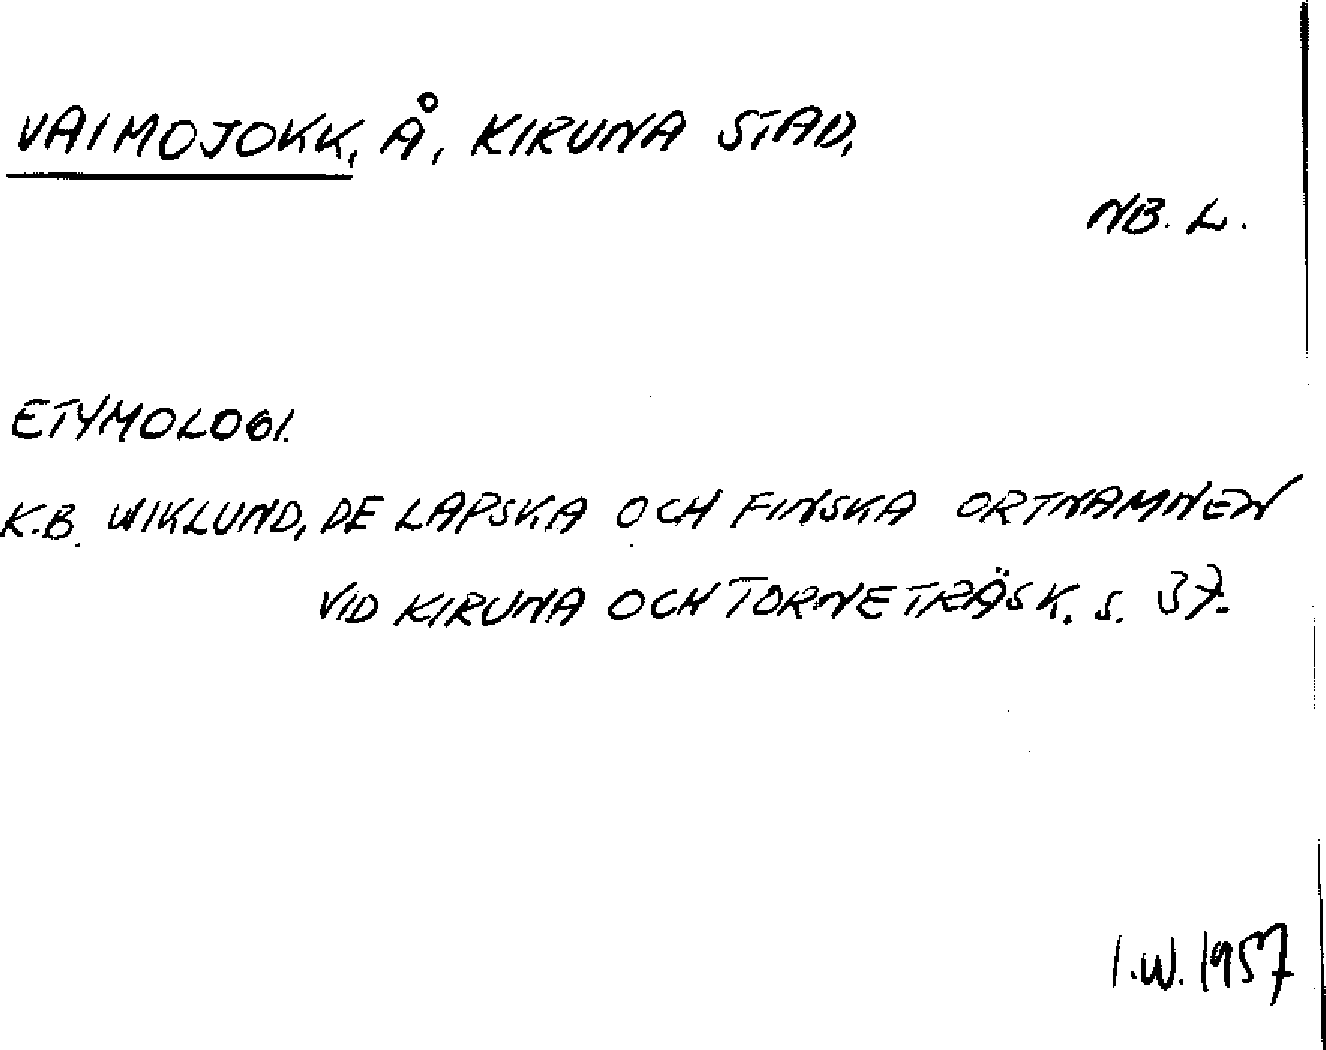 VAIMOJOKK, Å, KIRUNA STAD,
NB. L.
ETYMOLOGI.
K.B. WIKLUND, DE LAPSKA OCH FINSKA ORTNAMNEN
VID KIRUNA OCH TORNETRÄSK. S. 37.
I.W. 1957